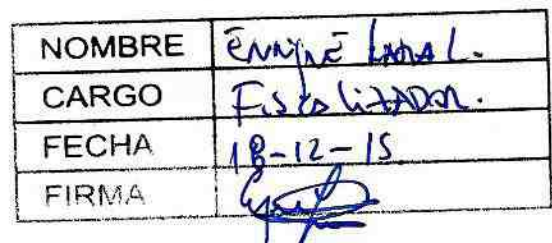 NOMBRE Enrique L.
CARGO Fiscalizador.
FECHA 18-12-15
FIRMA